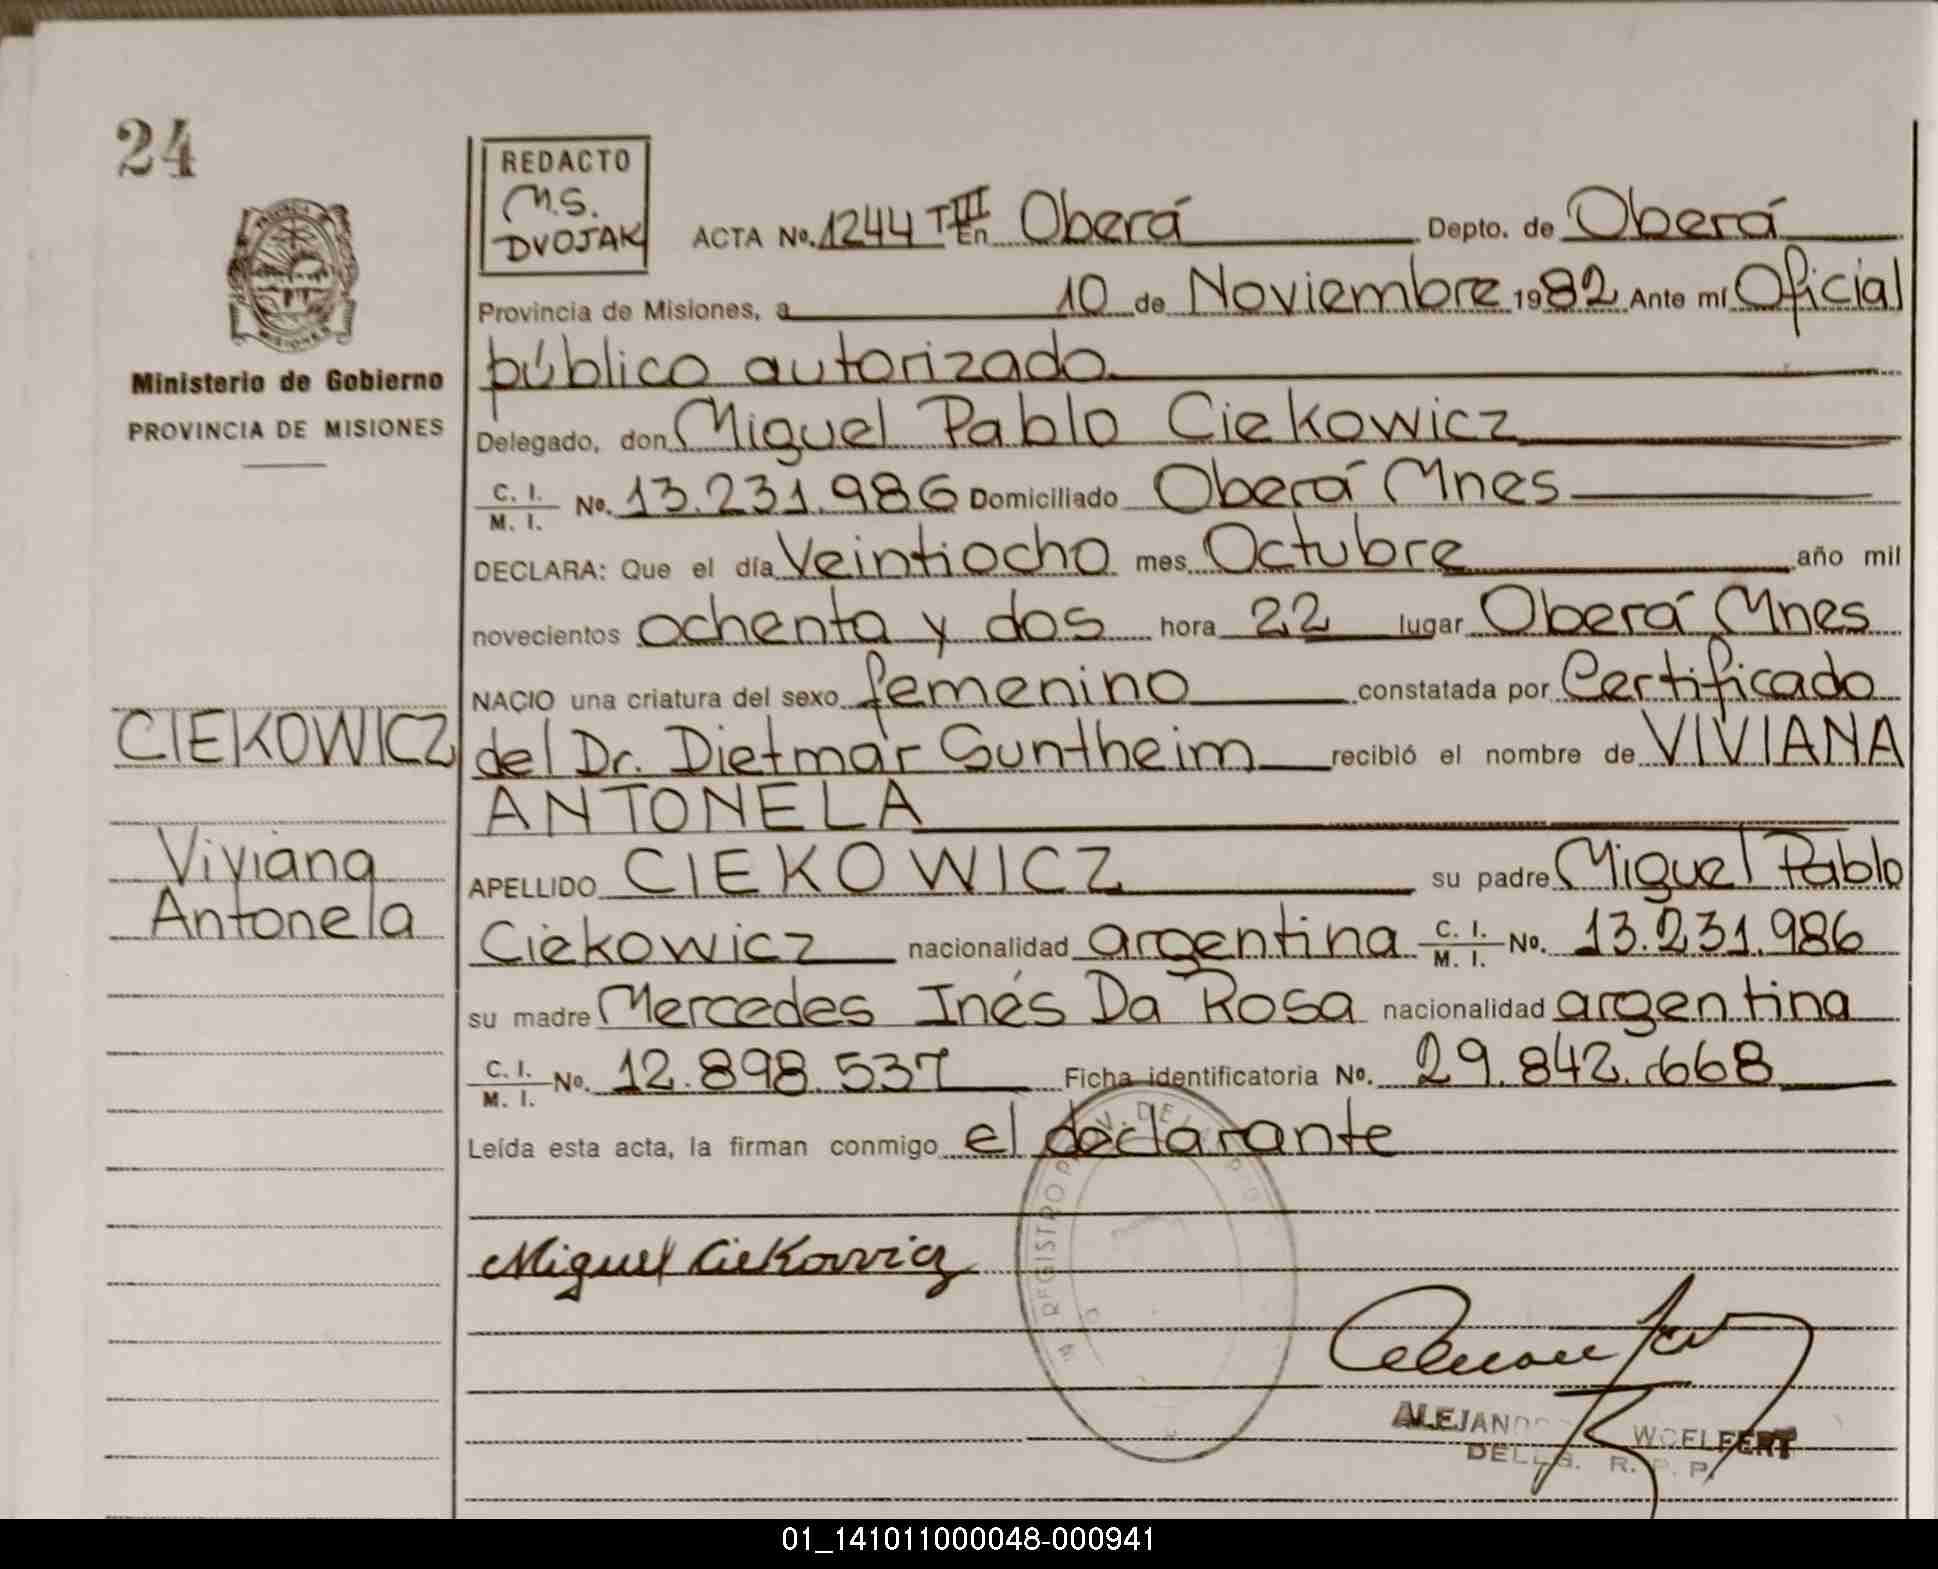 24
REDACTO
M.S.
DVOJAK
ACTA No. 1244 TIII En Oberá Depto. de Oberá
Provincia de Misiones, a 10 de Noviembre 1982 Ante mí Oficial
público autorizado
Delegado, don Miguel Pablo Ciekowicz
C. I.
M. I. No. 13.231.986 Domiciliado Oberá Mnes
DECLARA: Que el día Veintiocho mes Octubre año mil
novecientos ochenta y dos hora 22 lugar Oberá Mnes
NACIO una criatura del sexo femenino constatada por Certificado
del Dr. Dietmar Suntheim recibió el nombre de VIVIANA
ANTONELA
APELLIDO CIEKOWICZ su padre Miguel Pablo
Ciekowicz nacionalidad argentina C. I. M. I. No. 13.231.986
su madre Mercedes Inés Da Rosa nacionalidad argentina
C. I.
M. I. No. 12.898.537 Ficha identificatoria No. 29.842.668
Leída esta acta, la firman conmigo el declarante
Miguel Ciekowicz
ALEJANDRO WOELFERT
DELEG. R. P. P.
MISIONES
Ministerio de Gobierno
PROVINCIA DE MISIONES
CIEKOWICZ
Viviana
Antonela
01_141011000048-000941